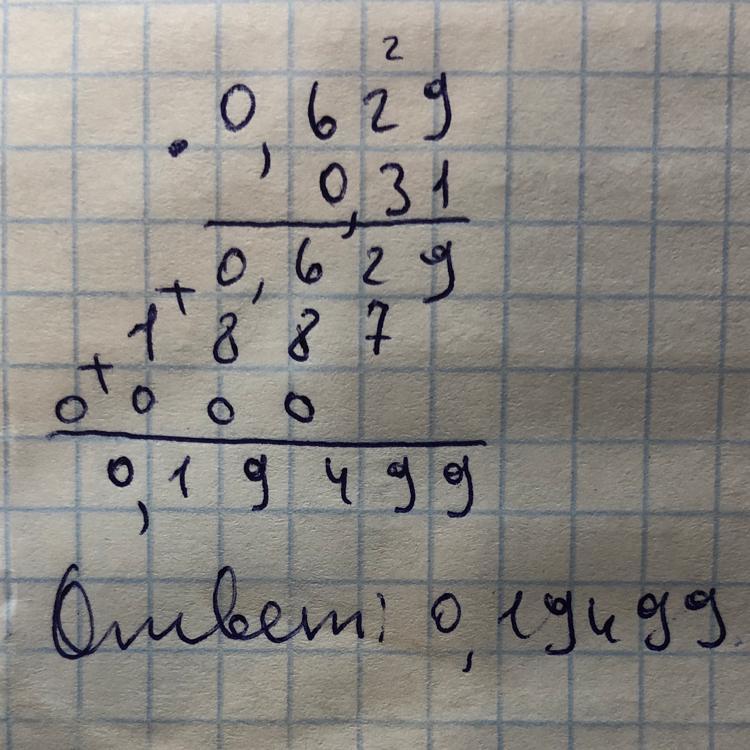 2
0,629
· 0,31
0,629
+ 1887
+ 0000
0,19499
Ответ: 0,19499